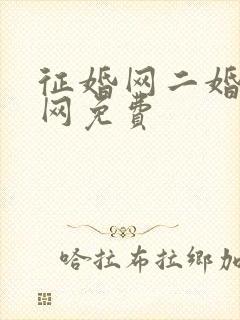 征婚网二婚
网免費
哈拉布拉鄉加